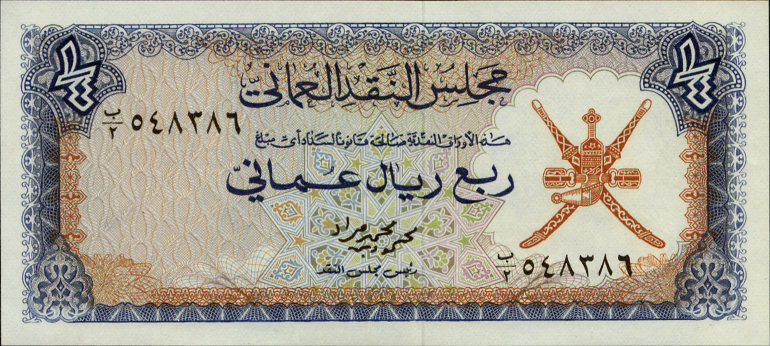 ١/٤ ١/٤
مجلس النقد العماني
ب/٢ ٥٤٨٣٨٦
هذه الأوراق النقدية صالحة قانونا لسداد أي مبلغ
ربع ريال عماني
رئيس مجلس النقد
ب/٢ ٥٤٨٣٨٦